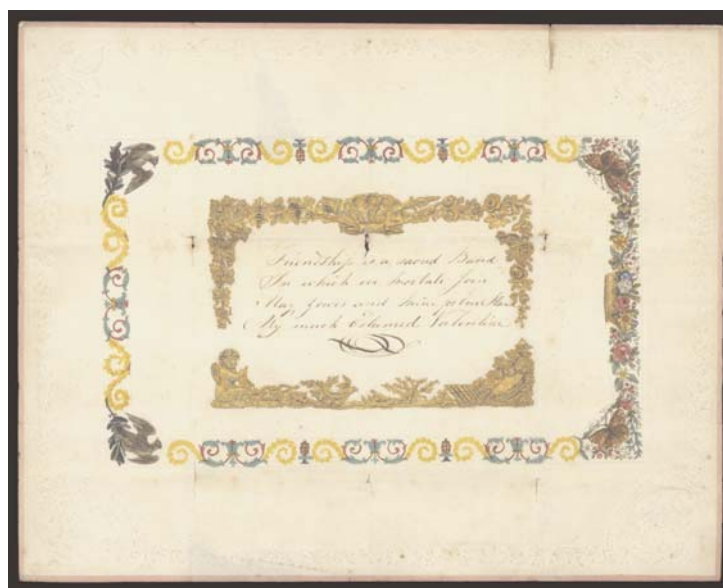 Friendship is a sacred Band
In which we mortals join
May yours and mine
My much Esteemed Valentine